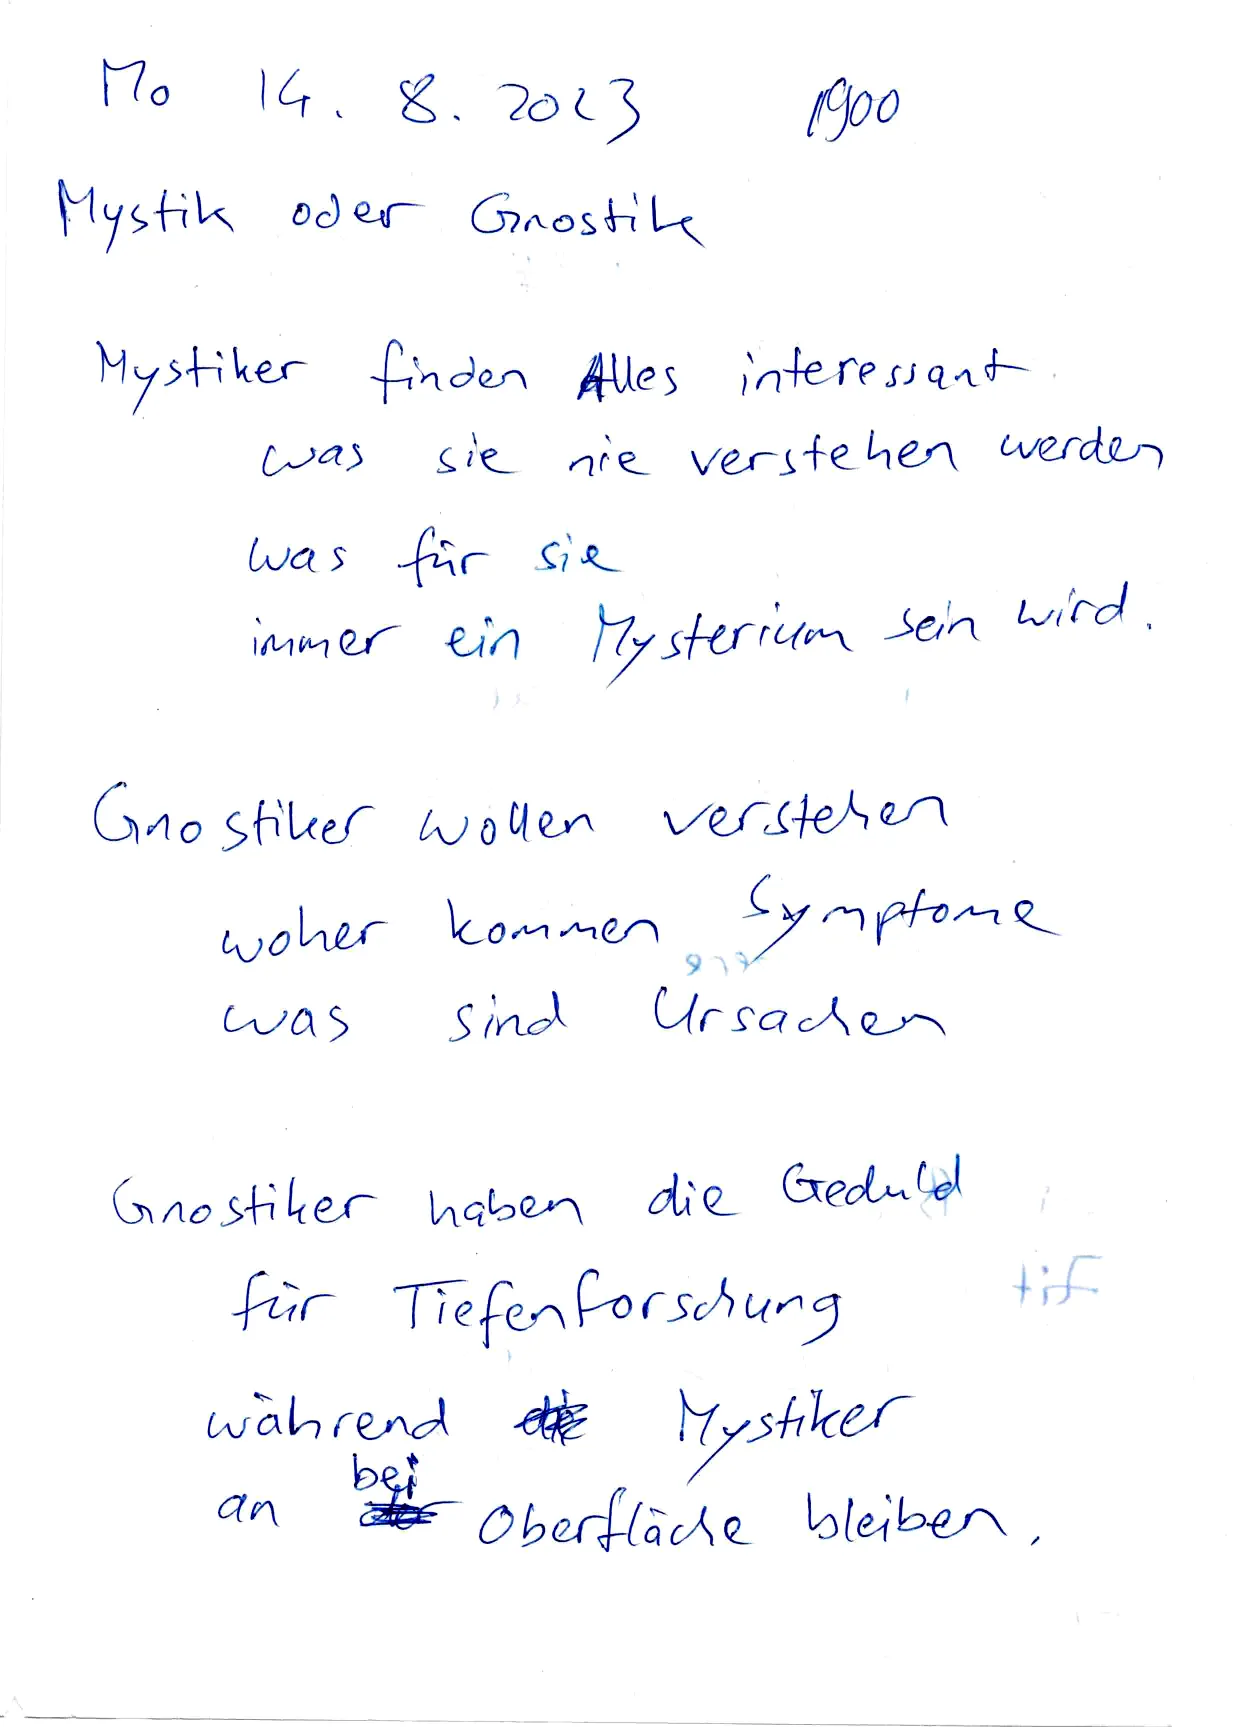 Mo 14. 8. 2023 1900
Mystik oder Gnostik
Mystiker finden Alles interessant
was sie nie verstehen werden
was für sie
immer ein Mysterium sein wird.
Gnostiker wollen verstehen
woher kommen Symptome
was sind Ursachen
Gnostiker haben die Geduld
für Tiefenforschung
während Mystiker
bei
an Oberfläche bleiben.